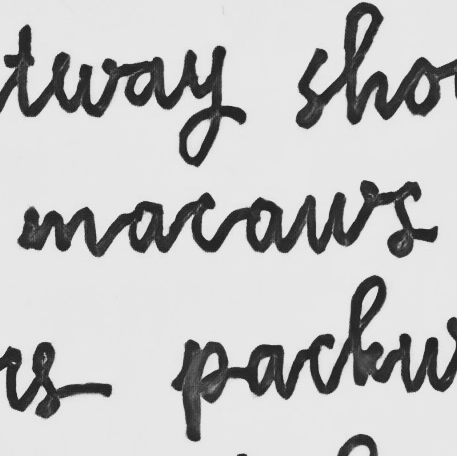 tway sho
macaws
rs packw